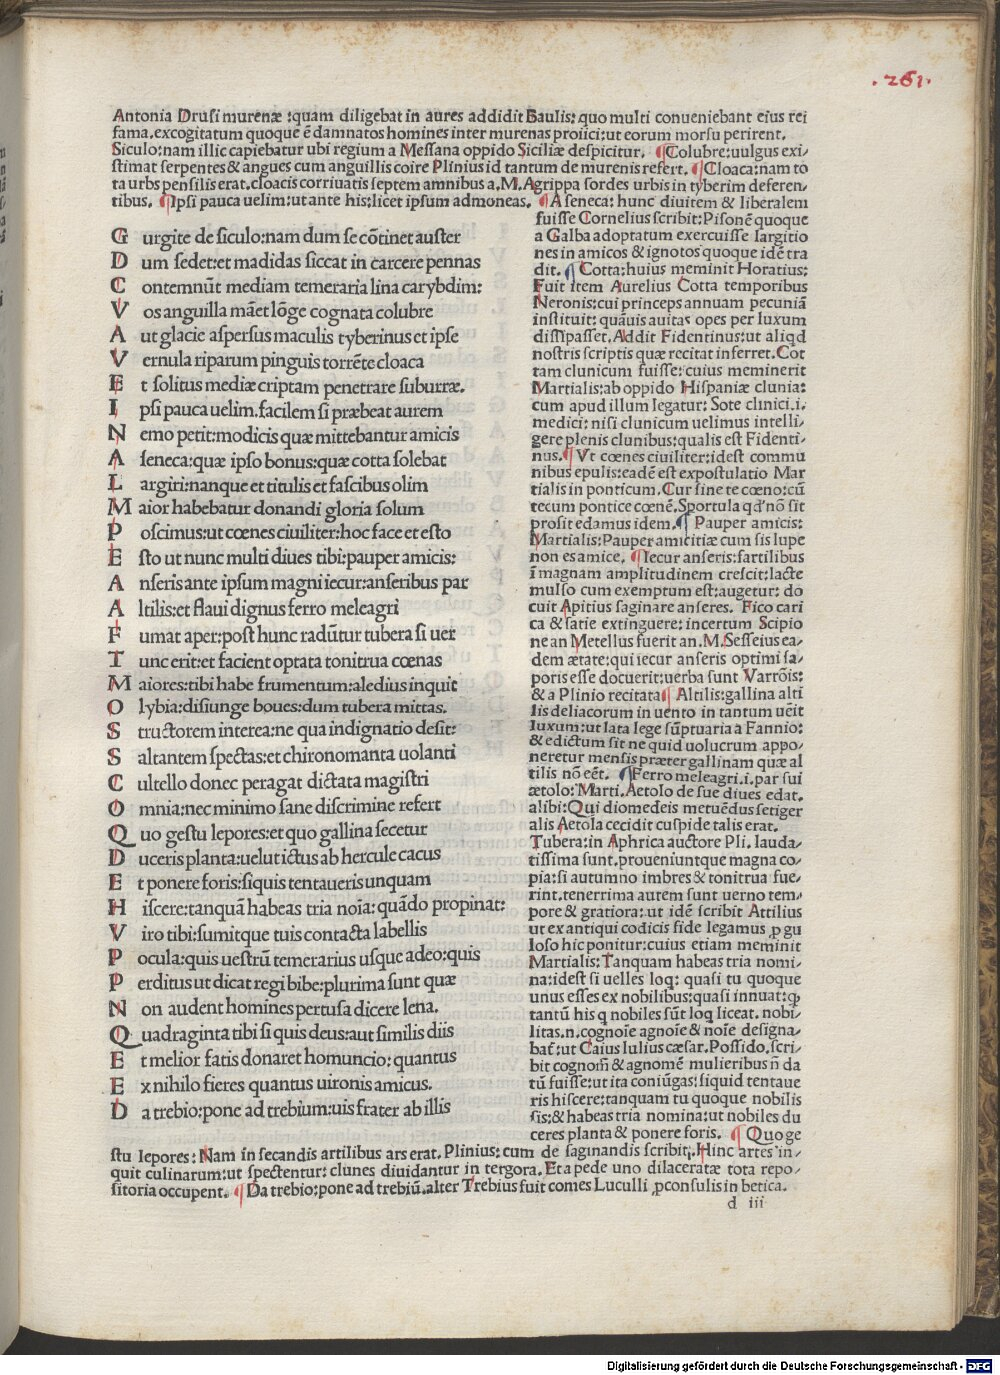 .261.
Antonia Drusi murenæ :quam diligebat in aures addidit Baulis: quo multi conueniebant eius rei
fama.excogitatum quoque ē damnatos homines inter murenas proiici:ut eorum morsu perirent.
Siculo:nam illic capiebatur ubi regium a Messana oppido Siciliæ despicitur. ¶Colubre:uulgus exi-
stimat serpentes & angues cum anguillis coire Plinius id tantum de murenis refert. ¶Cloaca:nam to
ta urbs pensilis erat.cloacis corriuatis septem amnibus a.M.Agrippa sordes urbis in tyberim deferen-
tibus. ¶Ipsi pauca uelim:ut ante his:licet ipsum admoneas. ¶A seneca: hunc diuitem & liberalem
G urgite de siculo:nam dum se cōtinet auster
D um sedet:et madidas siccat in carcere pennas
C ontemnūt mediam temeraria lina carybdim:
V os anguilla māet lōge cognata colubre
A ut glacie aspersus maculis tyberinus et ipse
V ernula riparum pinguis torrēte cloaca
E t solitus mediæ criptam penetrare suburræ.
I psi pauca uelim.facilem si præbeat aurem
N emo petit:modicis quæ mittebantur amicis
A seneca:quæ ipso bonus:quæ cotta solebat
L argiri:nanque et titulis et fascibus olim
M aior habebatur donandi gloria solum
P oscimus:ut cœnes ciuiliter:hoc face et esto
E sto ut nunc multi diues tibi:pauper amicis:
A nseris ante ipsum magni iecur:anseribus par
A ltilis:et flaui dignus ferro meleagri
F umat aper:post hunc radūtur tubera si uer
T unc erit:et facient optata tonitrua cœnas
M aiores:tibi habe frumentum:aledius inquit
O lybia:disiunge boues:dum tubera mittas.
S tructorem interea:ne qua indignatio desit:
S altantem spectas:et chironomanta uolanti
C ultello donec peragat dictata magistri
O mnia:nec minimo sane discrimine refert
Q uo gestu lepores:et quo gallina secetur
D uceris planta:uelut ictus ab hercule cacus
E t ponere foris:siquis tentaueris unquam
H iscere:tanquā habeas tria noīa:quādo propinat:
V iro tibi:sumitque tuis contacta labellis
P ocula:quis uestrū temerarius usque adeo:quis
P erditus ut dicat regi bibe:plurima sunt quæ
N on audent homines pertusa dicere lena.
Q uadraginta tibi si quis deus:aut similis diis
E t melior fatis donaret homuncio: quantus
E x nihilo fieres quantus uironis amicus.
D a trebio:pone ad trebium:uis frater ab illis
fuisse Cornelius scribit:Pisonē quoque
a Galba adoptatum exercuisse largitio
nes in amicos & ignotos quoque idē tra
dit. ¶Cotta:huius meminit Horatius:
Fuit item Aurelius Cotta temporibus
Neronis:cui princeps annuam pecuniā
instituit: quāuis auitas opes per luxum
dissipasset.Addit Fidentinus:ut aliqd
nostris scriptis quæ recitat inserret.Cot
tam clunicum fuisse:cuius meminerit
Martialis:ab oppido Hispaniæ clunia:
cum apud illum legatur: Sote clinici.i.
medici: nisi clunicum uelimus intelli-
gere plenis clunibus:qualis est Fidenti-
nus.¶Vt cœnes ciuiliter:idest commu
nibus epulis:eadē est expostulatio Mar
tialis in ponticum.Cur sine te cœno:cū
tecum pontice cœnē.Sportula qd'nō sit
prosit edamus idem.¶ Pauper amicis:
Martialis:Pauper amicitiæ cum sis lupe
non es amice. ¶Iecur anseris:fartilibus
ī magnam amplitudinem crescit:lacte
mulso cum exemptum est:augetur: do
cuit Apitius saginare anseres. Fico cari
ca & satie extinguere: incertum Scipio
ne an Metellus fuerit an.M.Sesseius ea-
dem ætate:qui iecur anseris optimi sa-
poris esse docuerit:uerba sunt Varrōis:
& a Plinio recitata¶Altilis:gallina alti
lis deliacorum in uento in tantum uēit
luxum:ut lata lege sūptuaria a Fannio:
& edictum sit ne quid uolucrum appo-
neretur mensis præter gallinam quæ al
tilis nō eēt. ¶Ferro meleagri.i.par sui
ætolo:Marti.Aetolo de sue diues edat.
alibi:Qui diomedeis metuēdus setiger
alis Aetola cecidit cuspide talis erat.
Tubera:in Aphrica auctore Pli.lauda-
tissima sunt.proueniuntque magna co-
pia:si autumno imbres & tonitrua fue-
rint.tenerrima autem sunt uerno tem-
pore & gratiora:ut idē scribit Attilius
ut ex antiqui codicis fide legamus ꝓ gu
loso hic ponitur:cuius etiam meminit
Martialis:Tanquam habeas tria nomi-
na:idest si uelles loq: quasi tu quoque
unus esses ex nobilibus:quasi innuat:ꝙ
tantū his q nobiles sūt loq liceat. nobi-
litas.n.cognoīe agnoīe & noīe designa-
bat:ut Caius Iulius cæsar.Possido.scri-
bit cognom & agnomē mulieribus n̄ da
tū fuisse:ut ita coniūgas:siquid tentaue
ris hiscere:tanquam tu quoque nobilis
sis:& habeas tria nomina:ut nobiles du
ceris planta & ponere foris. ¶Quo ge
stu lepores: Nam in secandis artilibus ars erat. Plinius: cum de saginandis scribit: Hinc artes in-
quit culinarum:ut spectentur: clunes diuidantur in tergora. Et a pede uno dilaceratæ tota repo-
sitoria occupent. ¶Da trebio:pone ad trebiū.alter Trebius fuit comes Luculli ꝓconsulis in betica.
d iii
Digitalisierung gefördert durch die Deutsche Forschungsgemeinschaft - DFG